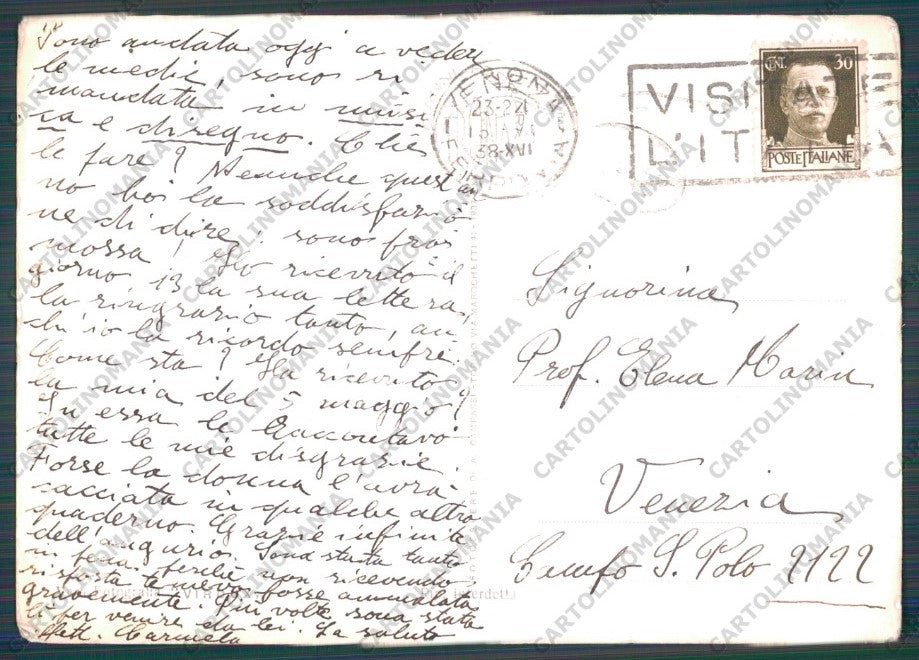 Sono andata oggi a veder
le medie, sono ri
mandata in musi
ca e disegno. Che
le fare? Neanche quest'an
no hoi la soddisfazio
ne di dire: sono pro
mossa! Ho ricevuto il
giorno 13 la sua lettera,
la ringrazio tanto, an
ch'io la ricordo sempre.
Come sta? Ha ricevuto
la mia del 5 maggio?
In essa le raccontavo
tutte le mie disgrazie.
Forse la donna l'avrà
cacciata in qualche altro
quaderno. Grazie infinite
dell'augurio. Sono stata tanto
in pena, perchè non ricevendo
risposta temevo fosse ammalata
gravemente. Più volte sono stata
lì per venire da lei. La saluto
Aff. Carmela
VERONA
23-24
38-XVI
VISITATE
L'ITALIA
CENT. 30
POSTE ITALIANE
Signorina
Prof. Elena Marin
Venezia
Campo S. Polo 2122
interdetta
CARTOLINOMANIA